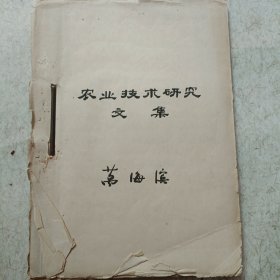 农业技术研究
文集
万海滨